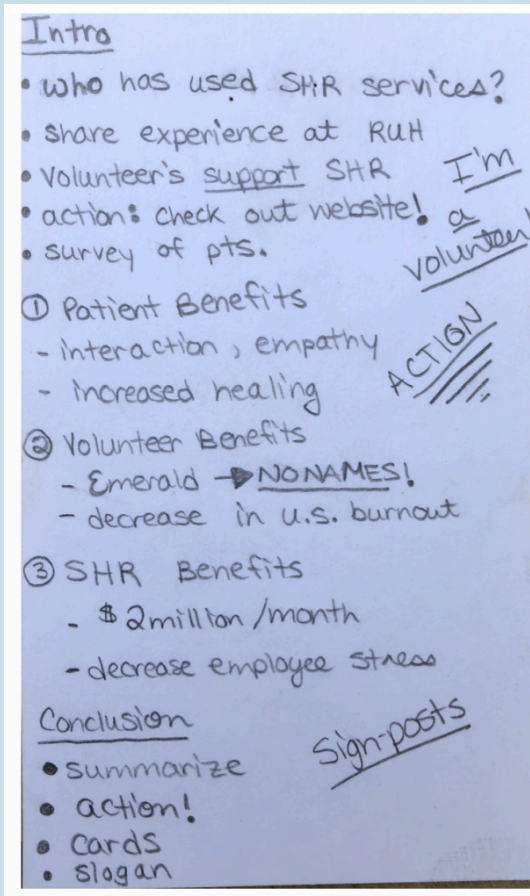 Intro
• who has used SHR services?
• share experience at RUH
• Volunteer's support SHR
• action: check out website!
• survey of pts.
I'm
a
volunteer!
① Patient Benefits
- interaction, empathy
- increased healing
ACTION
② Volunteer Benefits
- Emerald → NO NAMES!
- decrease in u.s. burnout
③ SHR Benefits
- $2million/month
- decrease employee stress
Conclusion
• summarize
• action!
• cards
• slogan
Sign-posts